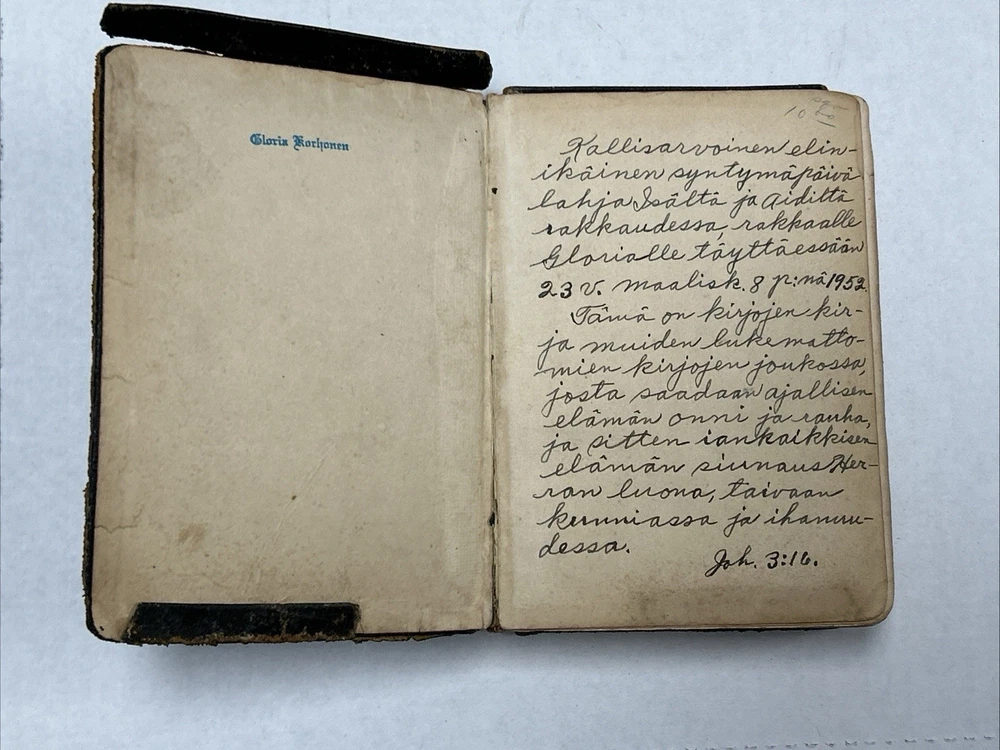 Gloria Korhonen
Kallisarvoinen elin-
ikäinen syntymäpäivä
lahja Isältä ja Äidiltä
rakkaudessa, rakkaalle
Glorialle täyttäessään
23 v. maalisk. 8 p:nä 1952.
Tämä on kirjojen kir-
ja muiden lukematto-
mien kirjojen joukossa,
josta saadaan ajallisen
elämän onni ja rauha,
ja sitten iankaikkisen
elämän siunaus Her-
ran luona, taivaan
kunniassa ja ihanuu-
dessa.
Joh. 3:16.